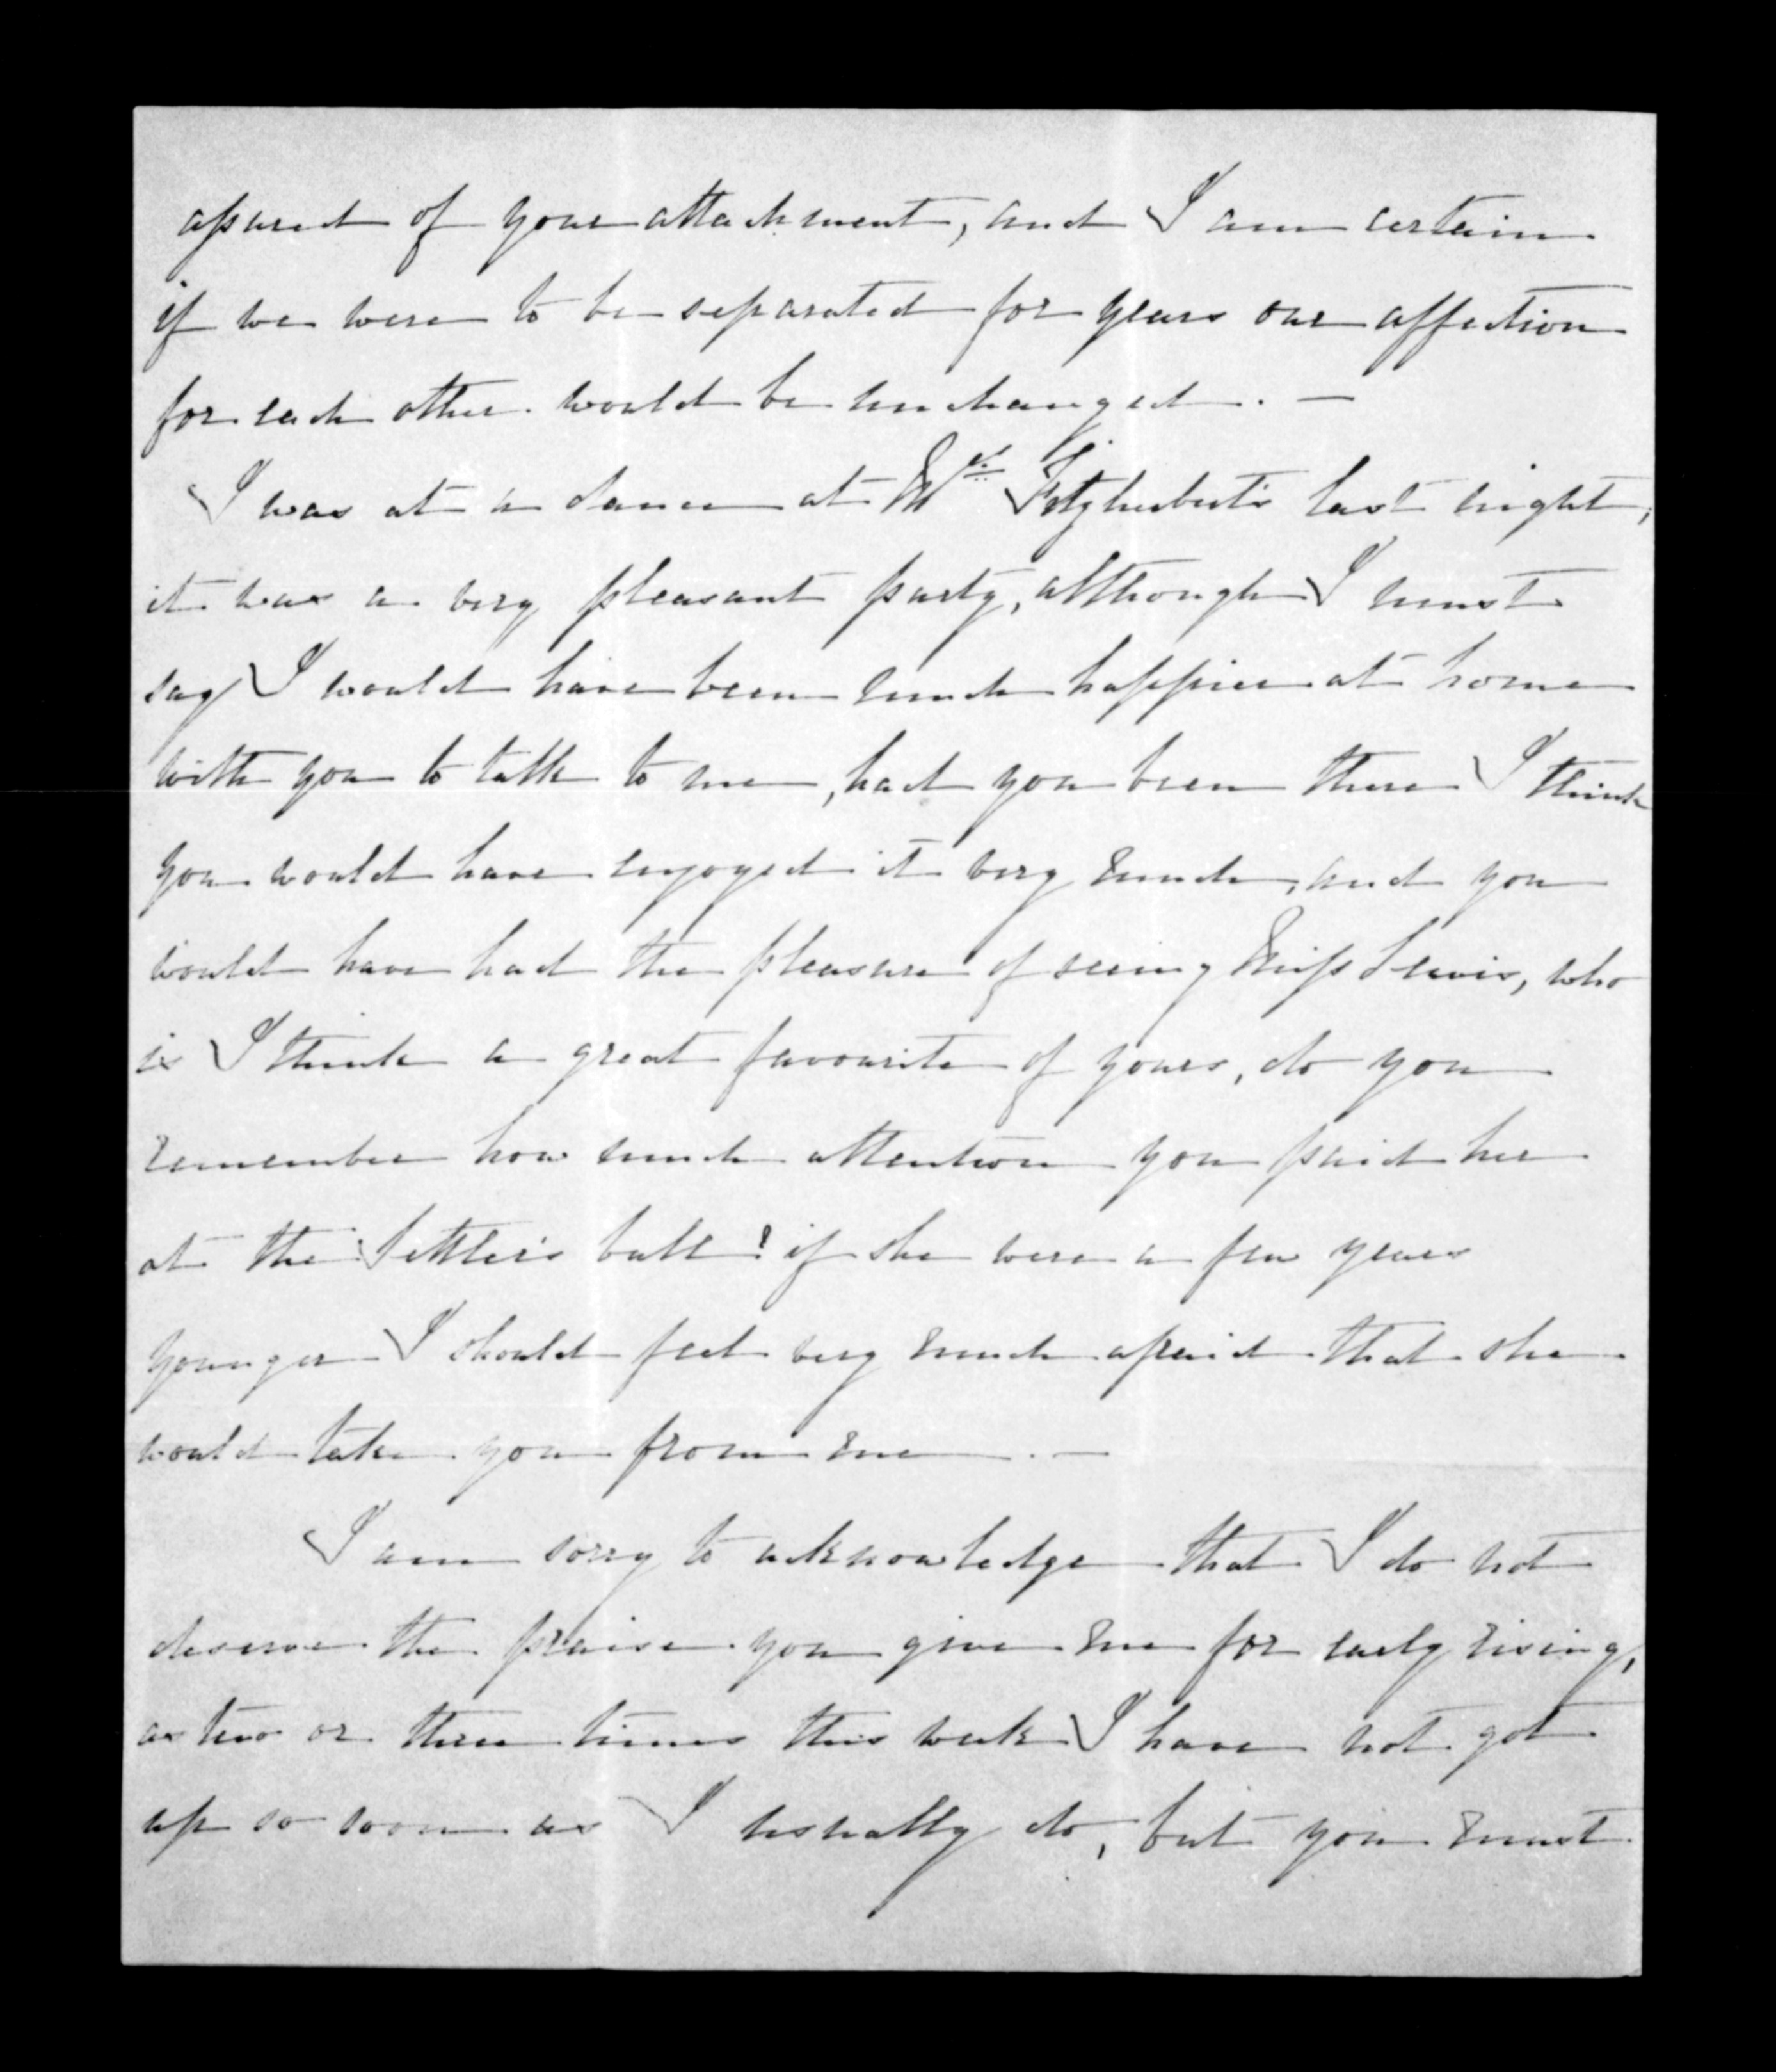 assured of your attachment, and I am certain
if we were to be separated for years our affection
for each other would be unchanged. —
I was at a dance at Mrs Fitzherbert's last night,
it was a very pleasant party, although I must
say I would have been much happier at home
with you to talk to me, had you been there I think
you would have enjoyed it very much, and you
would have had the pleasure of seeing Miss, who
is I think a great favourite of yours, do you
remember how much attention you paid her
at the Settler's ball? if she were a few years
younger I should feel very much afraid that she
would take you from me. —
I am sorry to acknowledge that I do not
deserve the praise you give me for early rising,
as two or three times this week I have not got
up so soon as I usually do, but you must